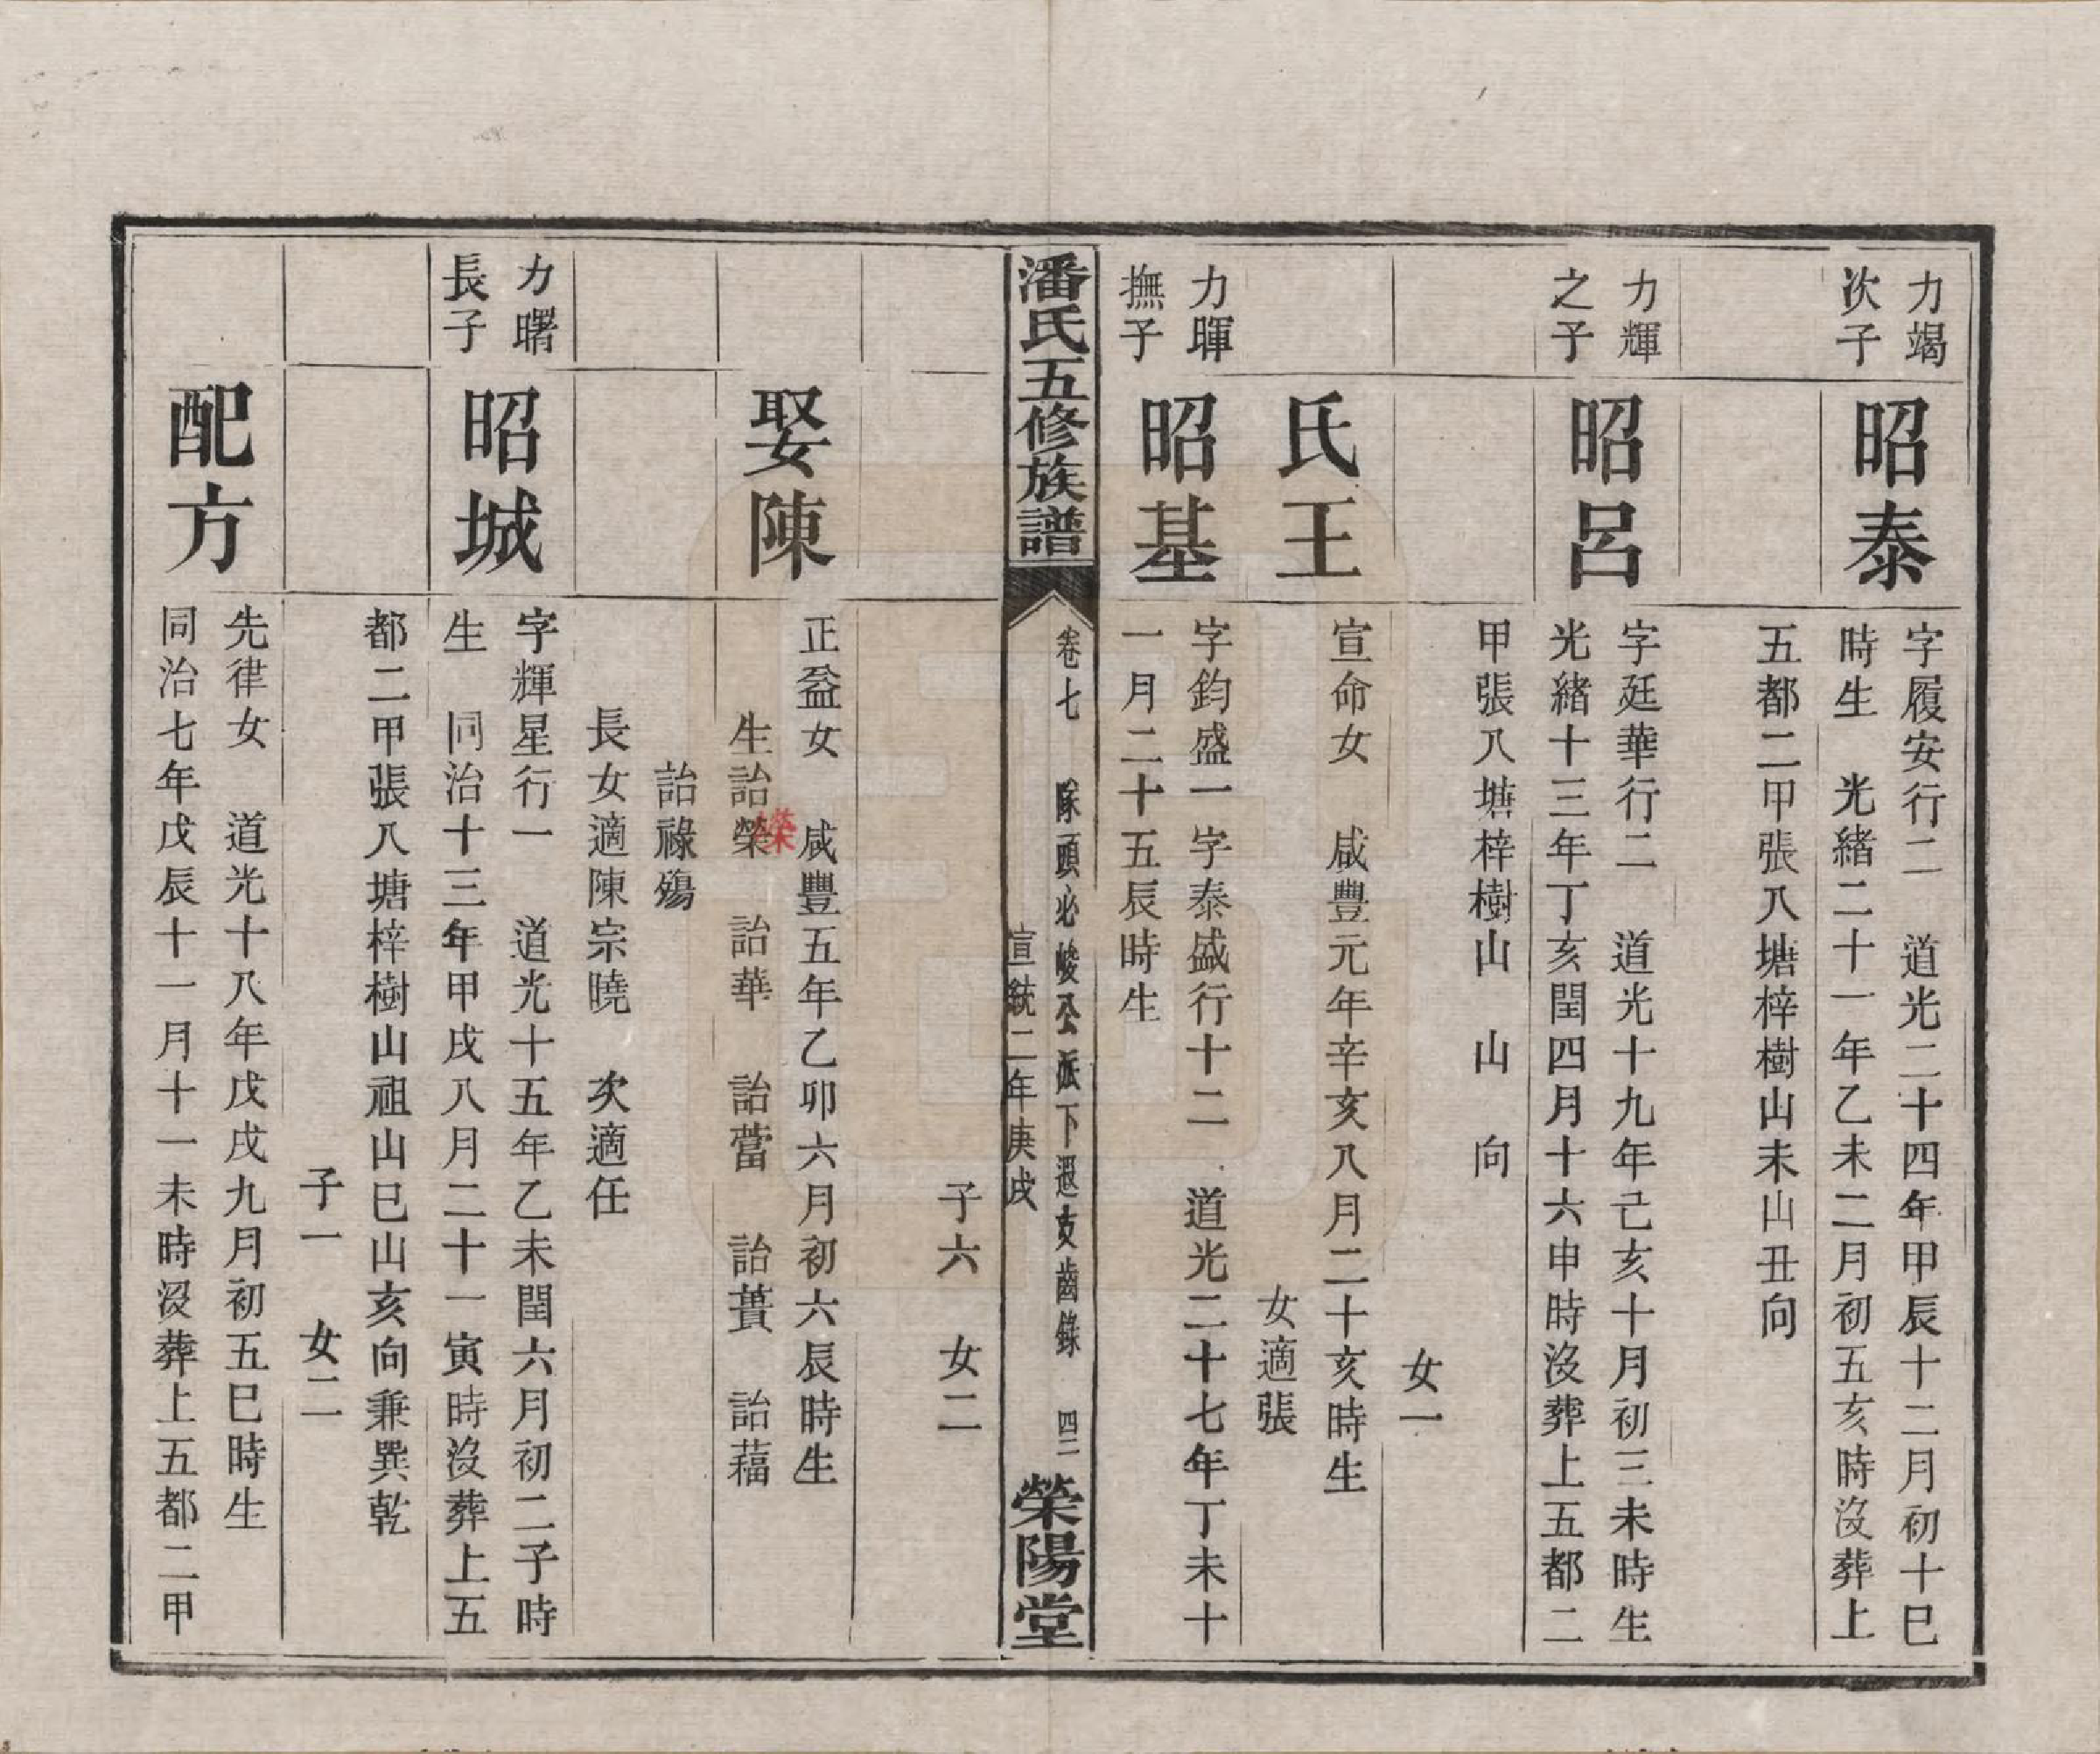 力竭
次子
昭泰
字履安行二　道光二十四年甲辰十二月初十巳
時生　光緒二十一年乙未二月初五亥時沒葬上
五都二甲張八塘梓樹山未山丑向
力輝
之子
昭呂
字廷華行二　道光十九年己亥十月初三未時生
光緒十三年丁亥閏四月十六申時沒葬上五都二
甲張八塘梓樹山　山　向
女一
氏王
宣命女　咸豐元年辛亥八月二十亥時生
女適張
力暉
撫子
昭基
字鈞盛一字泰盛行十二　道光二十七年丁未十
一月二十五辰時生
潘氏五修族譜
卷七　隊頭必崚公派下遐支齒錄　四二
宣統二年庚戌
榮陽堂
子六　女二
娶陳
正益女　咸豐五年乙卯六月初六辰時生
生詒榮　詒華　詒蕾　詒蕢　詒蕴
榮
詒祿殤
長女適陳宗曉　次適任
力曙
長子
昭城
字輝星行一　道光十五年乙未閏六月初二子時
生　同治十三年甲戌八月二十一寅時沒葬上五
都二甲張八塘梓樹山祖山巳山亥向兼巽乾
子一　女二
配方
先律女　道光十八年戊戌九月初五巳時生
同治七年戊辰十一月十一未時沒葬上五都二甲